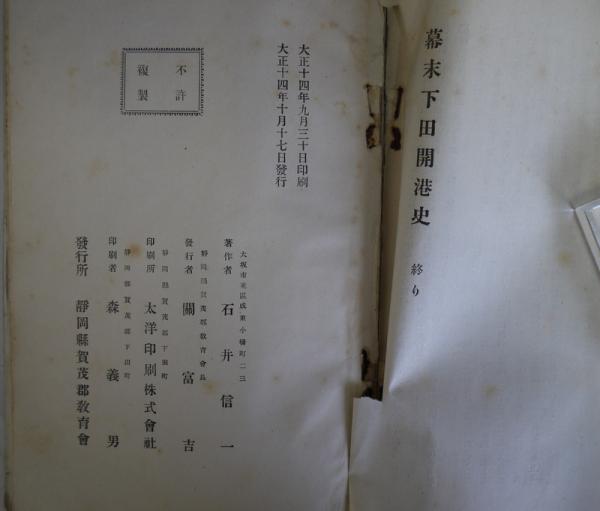 幕末下田開港史 終り
大正十四年九月三十日印刷
大正十四年十月十七日發行
不許
複製
大坂市東區成東小橋町二三
著作者 石井信一
靜岡縣賀茂郡敎育會長
發行者 關富吉
靜岡縣賀茂郡下田町
印刷所 太洋印刷株式會社
靜岡縣賀茂郡下田町
印刷者 森義男
發行所 靜岡縣賀茂郡敎育會